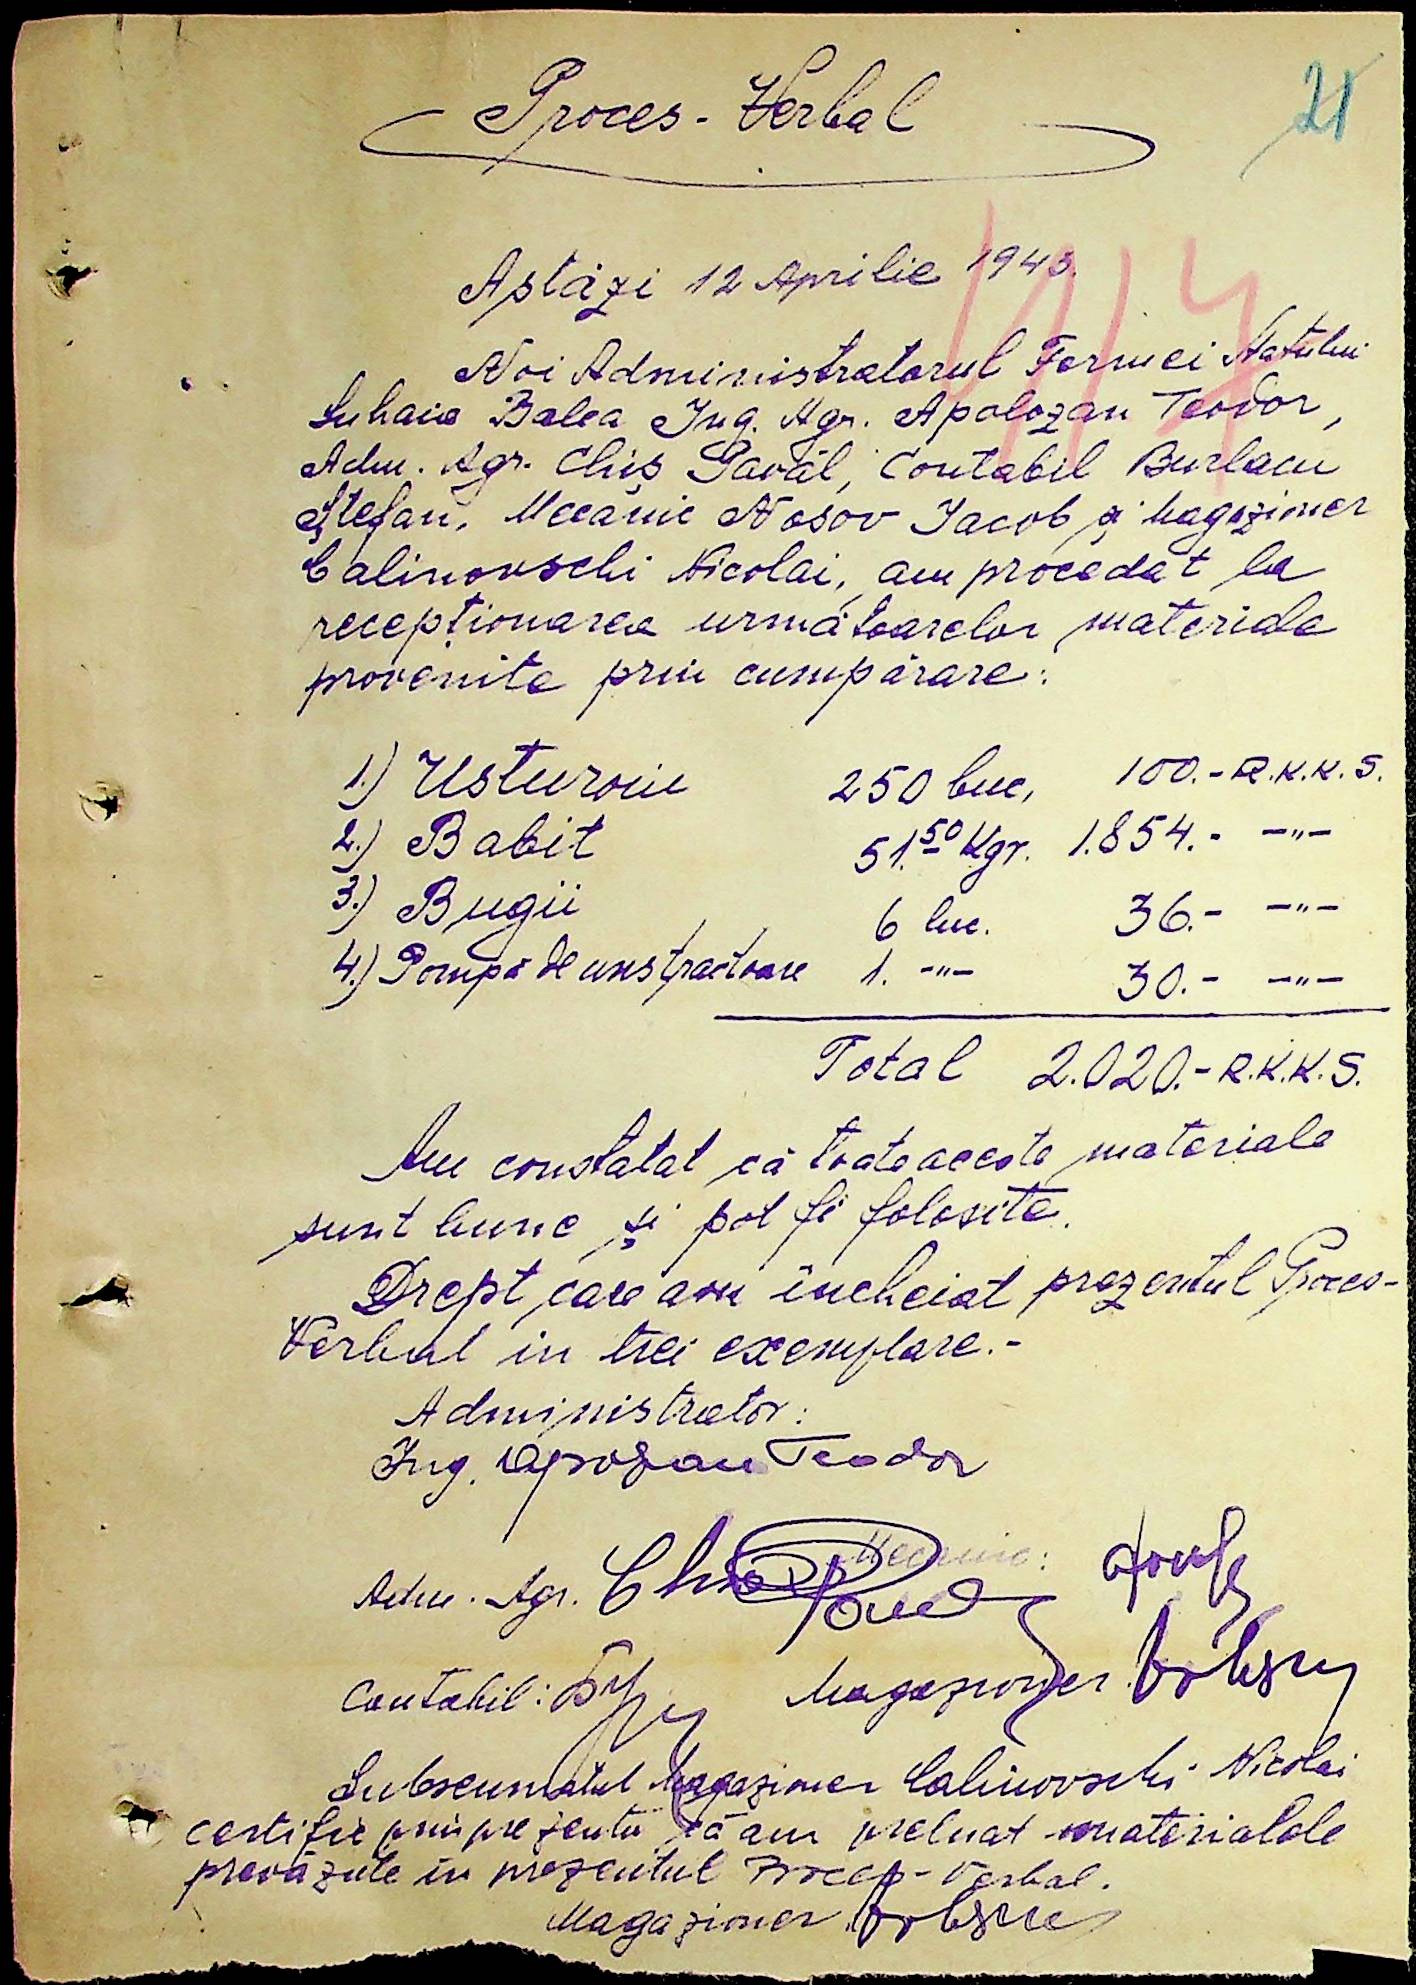 21
Proces-Verbal
Astăzi 12 Aprilie 1943.
Noi Administratorul Fermei Statului
Suhaia Balca Ing. Agr. Apolozan Teodor,
Adm. Agr. Chiș Gavăl, Contabil Burlacu
Ștefan, Mecanic Nosov Iacob și Magaziner
Calinovschi Nicolai, am procedat la
recepționarea următoarelor materiale
provenite prin cumpărare:
1.) Usturoiu 250 buc, 100.- R.K.K.S.
2.) Babit 51.50 Kgr. 1.854.- -"-
3.) Bugii 6 buc. 36.- -"-
4.) Pompă de uns tractoare 1. -"- 30.- -"-
Total 2.020.- R.K.K.S.
Am constatat că toate aceste materiale
sunt bune și pot fi folosite.
Drept care am încheiat prezentul Proces-
Verbal in trei exemplare.-
Administrator:
Ing. Apolozan Teodor
Mecanic:
Adm. Agr. Chiș
Contabil: Magaziner
Subsemnatul Magaziner Calinovschi Nicolai
certific prin prezenta că am preluat materialele
prevăzute in prezentul Proces-Verbal.
Magaziner